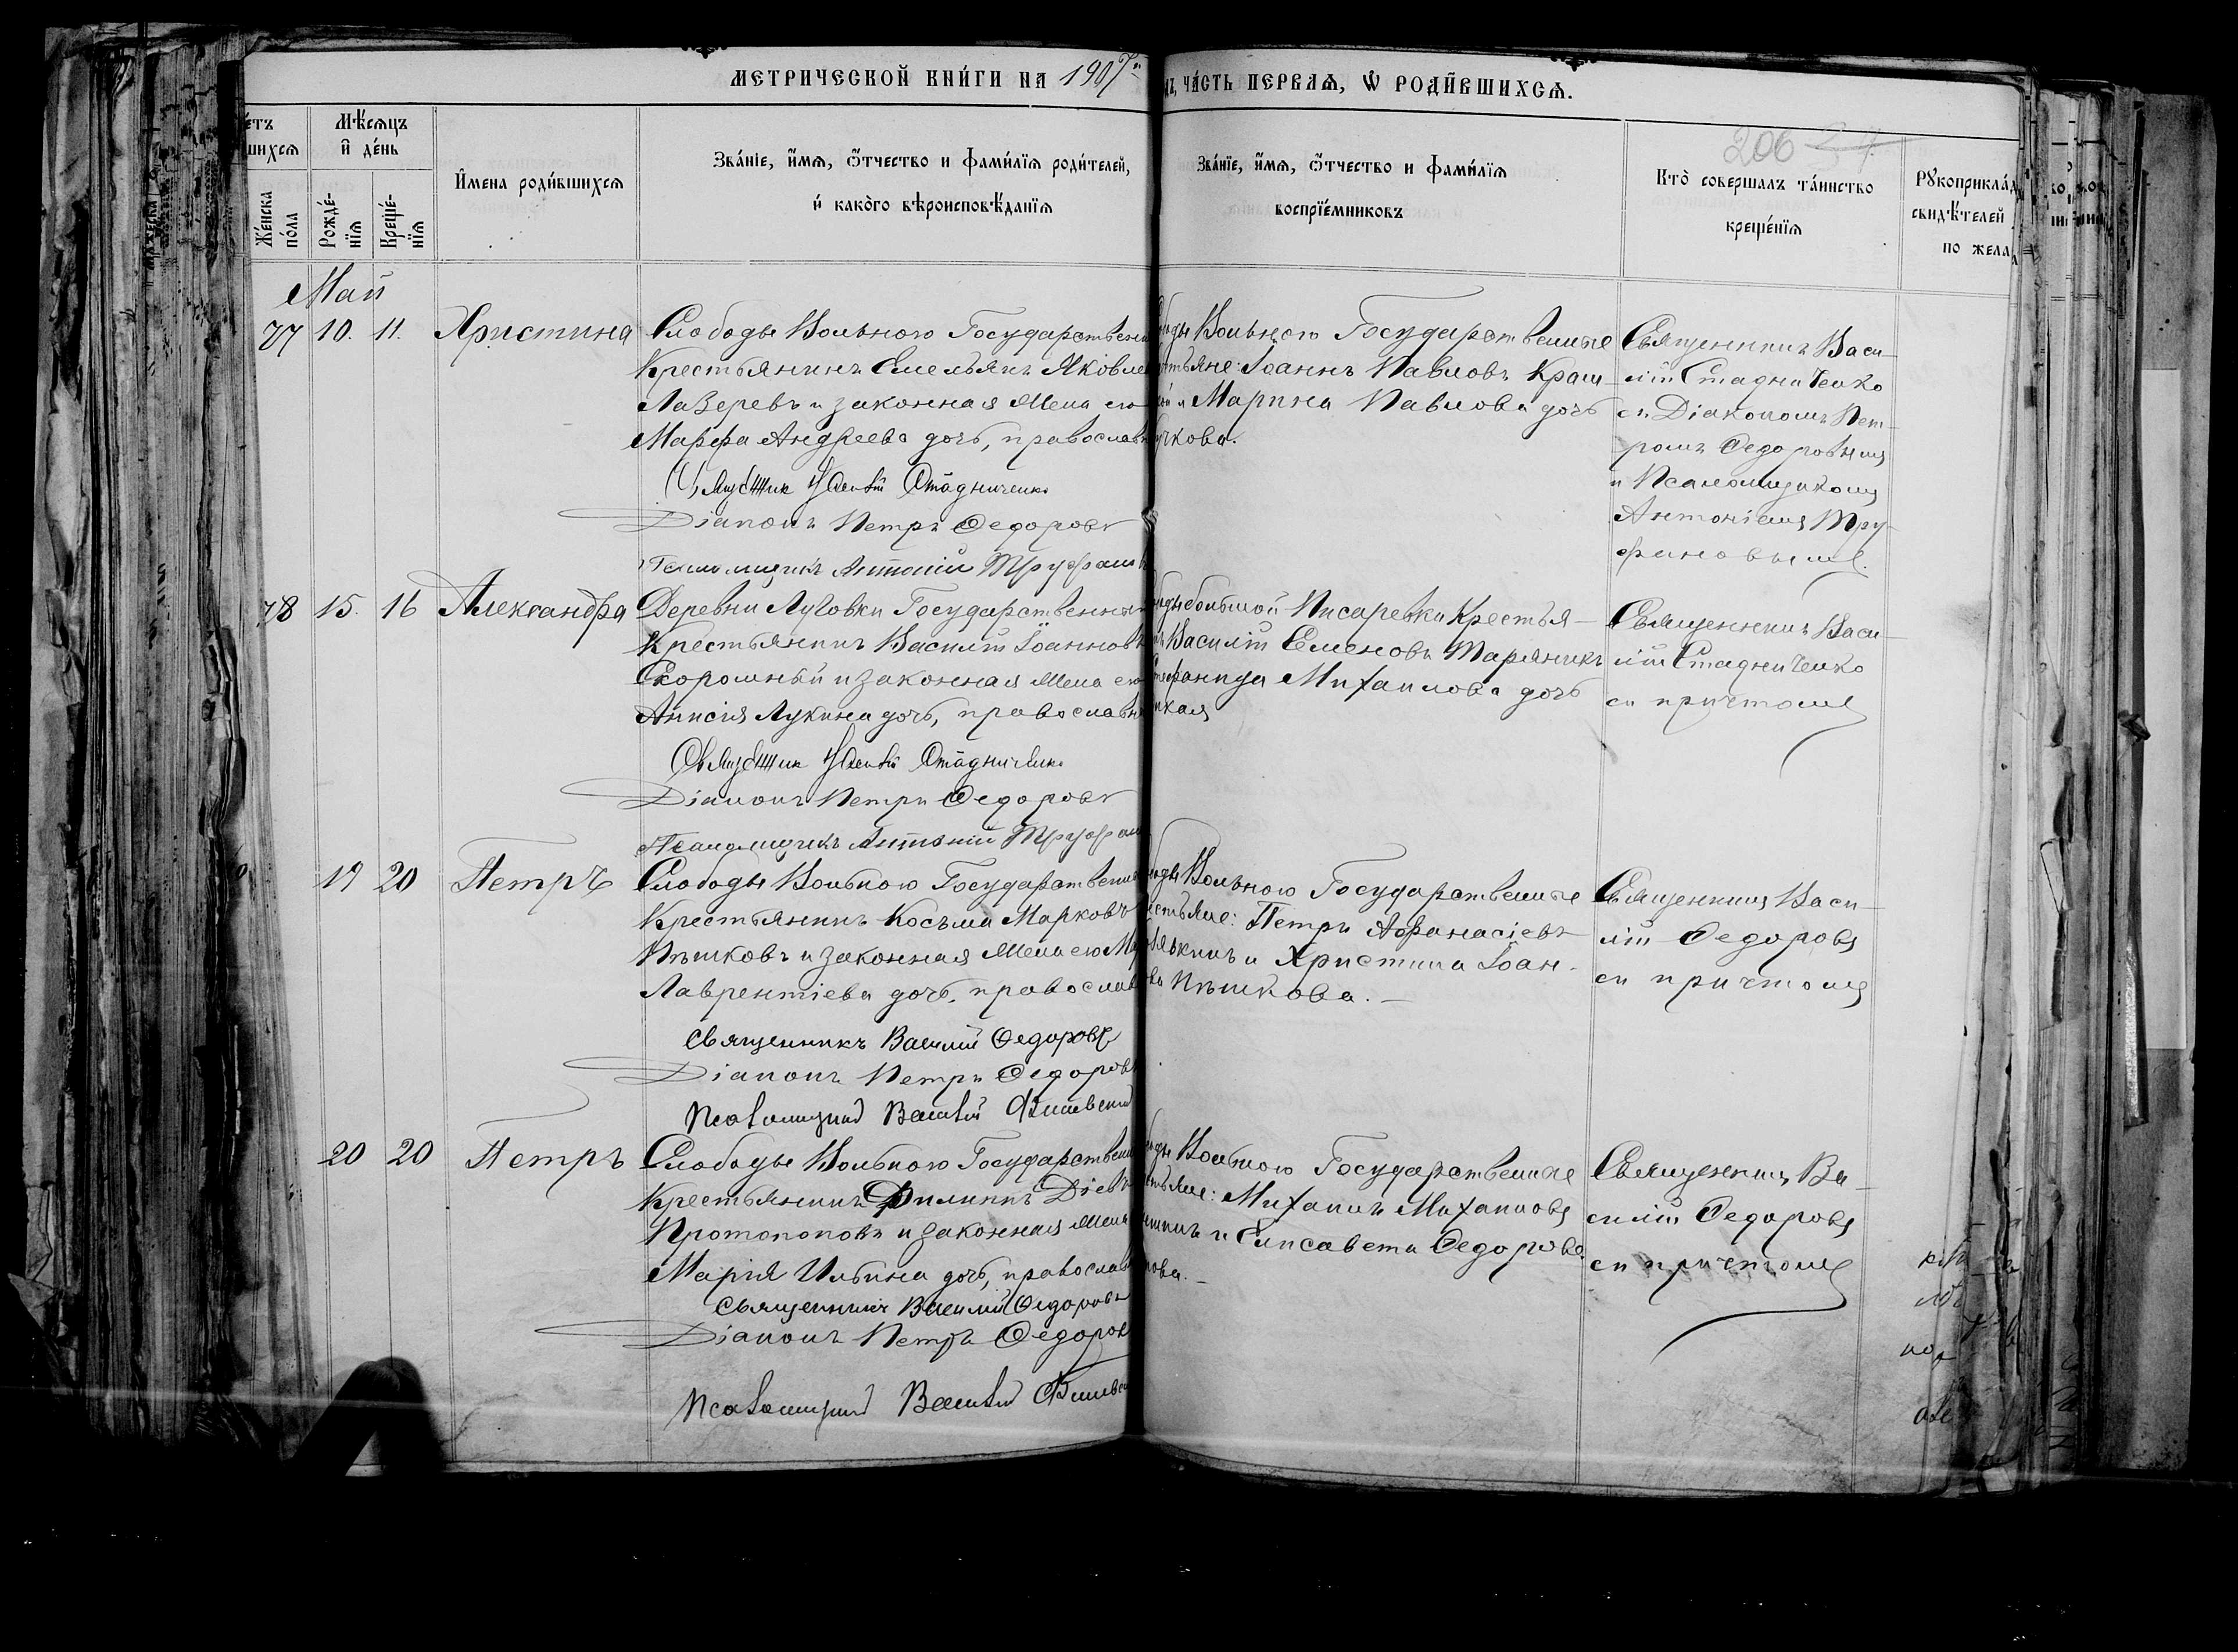 МЕТРИЧЕСКОЙ КНИ́ГИ НА 1907й
ЧА́СТЬ ПЕРВАѦ, Ѡ РОДИ́ВШИХСѦ.
206
Мѣ́сѧцъ
и҆ де́нь
Же́нска
по́ла
Рожде́-
нїѧ
Креще́-
нїѧ
И҆мена роди́вшихсѧ
Зва́нїе, и҆́мѧ, ѻ҆́тчество и фами́лїѧ роди́телей,
и҆ како́го вѣроисповѣ́данїѧ
Зва́нїе, и҆́мѧ, ѻ҆́тчество и фами́лїѧ
воспрїе́мниковъ
Кто̀ соверша́лъ та́инство
креще́нїѧ
свидѣ́телей
по жела
Май
77 10. 11. Христина
Слободы Вольного Государствен
Крестьянинъ Емельянъ Яковле
Лазеревъ и законная жена его
Марфа Андреева дочь, православн
Василій Стадниченко
Діаконъ Петръ Федоровъ
Псаломщикъ Антоній Труфан
Вольного Государственные
Іоаннъ Павловъ Краш-
и Марина Павлова дочь
Священникъ Васи-
лій Стадниченко
съ Діакономъ Пет-
ромъ Федоровымъ
и Псаломщикомъ
Антоніемъ Тру-
фановымъ.
78 15. 16 Александра
Деревни Луговки Государственный
Крестьянинъ Василій Іоанновъ
Скорошный и законная жена его
Анисія Лукина дочь, православн
Священник Василій Стадниченко
Діаконъ Петръ Федоровъ
Псаломщикъ Антоній Труфан
большой Писаревки Крестья-
Василій Семеновъ Марянчикъ
Стефанида Михаилова дочь
Священникъ Васи-
лій Стадниченко
съ причтомъ
19 20 Петръ
Слободы Вольного Государствен
Крестьянинъ Косьма Марковъ
Пѣшковъ и законная жена его
Лаврентіева дочь, православ
Священникъ Василій Федоровъ
Діаконъ Петръ Федоровъ
Псаломщикъ Василій
Вольного Государственные
Петръ Афанасіевъ
и Христина Іоан-
Пѣшкова.
Священникъ Васи-
лій Федоровъ
съ причтомъ
20 20 Петръ
Слободы Вольного Государствен
Крестьянинъ Филиппъ Діевъ
Протопоповъ и законная жена
Марія Ильина дочь, православ
Священникъ Василій Федоровъ
Діаконъ Петръ Федоров
Псаломщикъ Василій
Вольного Государственные
Михаилъ Михаиловъ
и Елисавета Федорова
Священникъ Ва-
силій Федоровъ
съ причтомъ